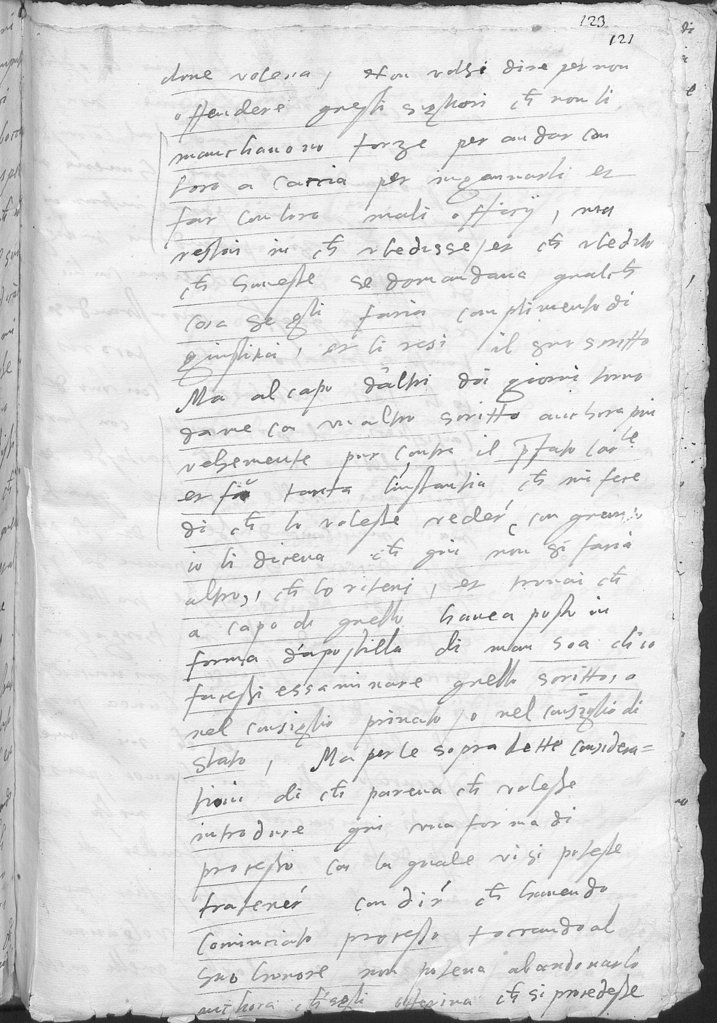 123
121
dove voleva, Non volsi dire per non
offendere questi signori ch̄ non li
manchavono forze per andar con
loro a caccia per ingannarli et
far con loro mali officij, ma
restai in ch̄ ubedisse, et ch̄ ubedito
ch̄ havesse se domandava qualch̄
cosa se gli faria complimento di
giustitia, et li resi il suo scritto
Ma al capo d'altri doi giorni torno
dame con un altro scritto anchora piu
vehemente pur contra il p̄fato Car.le
et fu tanta l'instantia ch̄ mi fece
di ch̄ lo volesse veder, con
io li diceva ch̄ qui non si faria
altro, ch̄ lo riteni, et trovai ch̄
a capo di quello havea posto in
forma d'apostilla di man soa ch'io
facessi essaminare quello scritto, o
nel consiglio privato, o nel consiglio di
stato, Ma per le sopra dette considera=
tioni di ch̄ pareva ch̄ volesse
introdure qui una forma di
processo con la quale vi si potesse
tratener con dir ch̄ havendo
cominciato processo toccando al
suo honore non poteva abandonarlo
anchora ch'egli ch̄ si procedesse